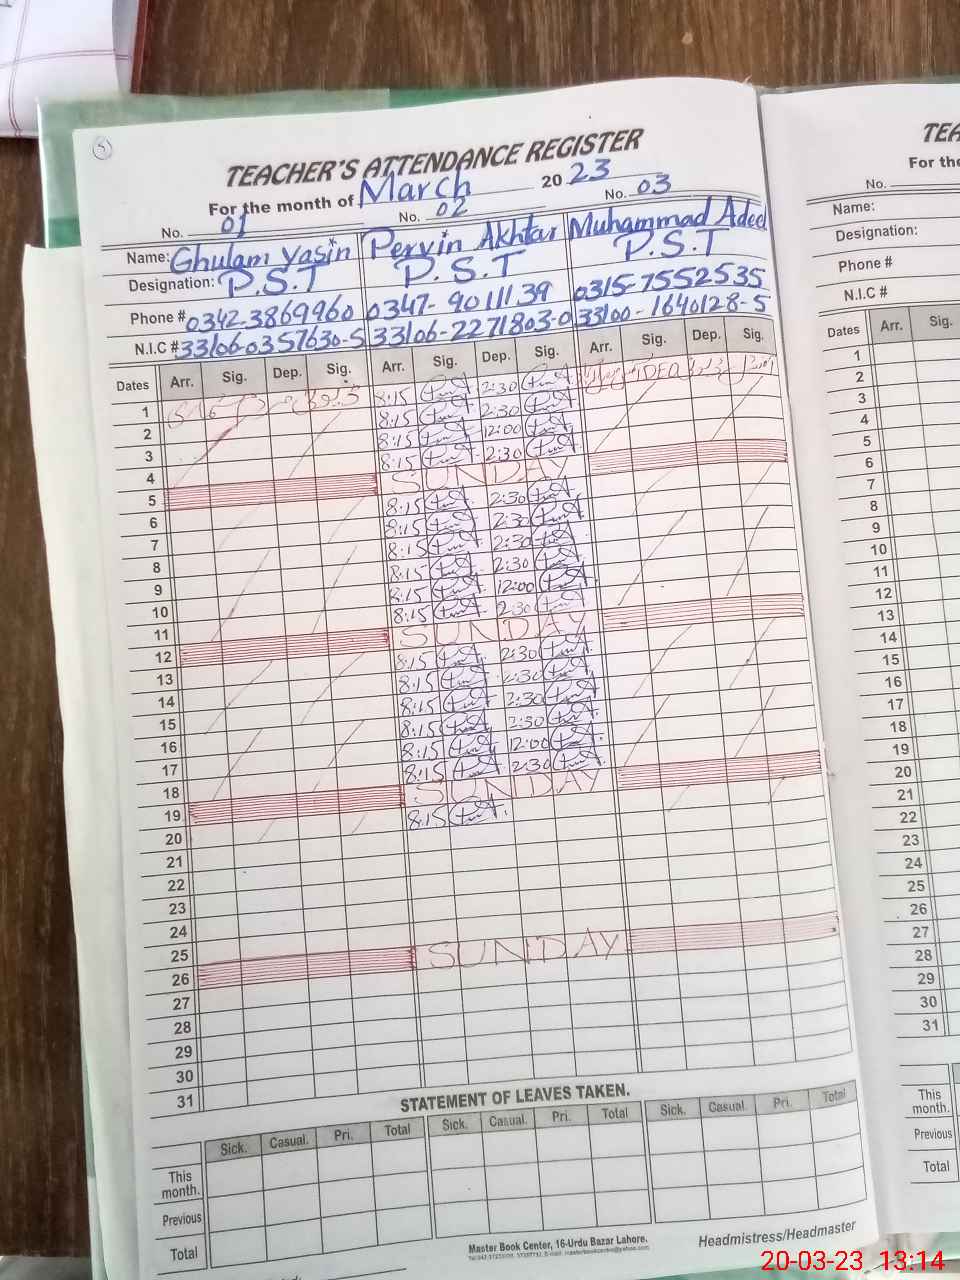 5
TEACHER'S ATTENDANCE REGISTER
For the month of March 2023
No. 01 No. 02 No. 03
Name: Ghulam Yasin Pervin Akhtar Muhammad Adeel
Designation: P.S.T P.S.T P.S.T
Phone # 0342-3869960 0347-9011139 0315-7552535
N.I.C # 33106-0357630-5 33106-2271803-0 33100-1640128-5
Dates Arr. Sig. Dep. Sig. Arr. Sig. Dep. Sig. Arr. Sig. Dep. Sig.
1 8:15 2:30
2 8:15 2:30
3 8:15 12:00
4 8:15 2:30
5 SUNDAY
6 8:15 2:30
7 8:15 2:30
8 8:15 2:30
9 8:15 2:30
10 8:15 12:00
11 8:15 2:30
12 SUNDAY
13 8:15 2:30
14 8:15 2:30
15 8:15 2:30
16 8:15 2:30
17 8:15 12:00
18 8:15 2:30
19 SUNDAY
20 8:15
21
22
23
24
25
26 SUNDAY
27
28
29
30
31
STATEMENT OF LEAVES TAKEN.
Sick. Casual. Pri. Total Sick. Casual. Pri. Total Sick. Casual. Pri. Total
This month.
Previous
Total
Master Book Center, 16-Urdu Bazar Lahore.
Headmistress/Headmaster
TEA
For the
No.
Name:
Designation:
Phone #
N.I.C #
Dates Arr. Sig.
1
2
3
4
5
6
7
8
9
10
11
12
13
14
15
16
17
18
19
20
21
22
23
24
25
26
27
28
29
30
31
This month.
Previous
Total
20-03-23 13:14